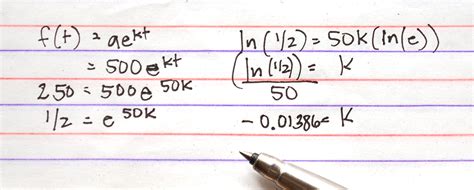 f(t) = ae^kt
= 500e^kt
250 = 500e^50k
1/2 = e^50k
ln(1/2) = 50k(ln(e))
(ln(1/2)) = k
50
-0.01386 = k